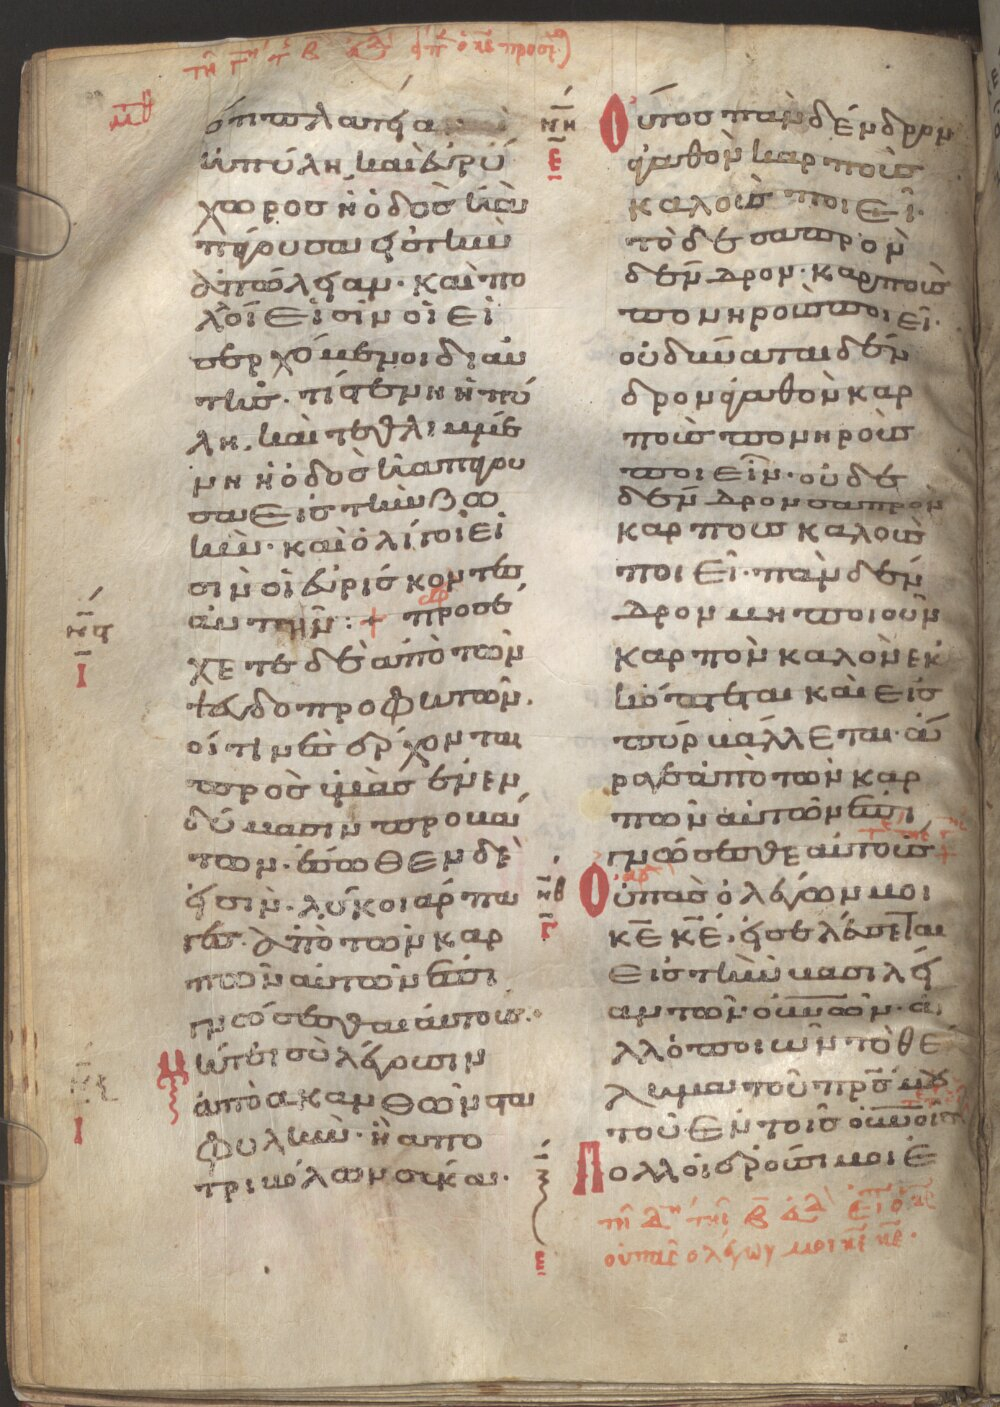 ὅτι πλατεῖα
ἡ πύλη καὶ εὐρύ
χωρος ἡ ὁδὸς ἡ ἀ
πάγουσα εἰς τὴν
ἀπώλειαν· καὶ πο
λοί εἰσιν οἱ εἰ
σερχόμενοι δι αὐ
τῆς· τί στενὴ ἡ πύ
λη, καὶ τεθλιμμέ
νη ἡ ὁδὸς ἡ ἀπάγου
σα εἰς τὴν ζω
ὴν· καὶ ὀλίγοι εἰ
σὶν οἱ εὑρίσκοντες
αὐτήν: + προσέ
χετε δὲ ἀπὸ τῶν
ψευδοπροφητῶν.
οἵτινες ἔρχονται
πρὸς ὑμᾶς ἐν ἐν
δύμασιν προβά
των· ἔσωθεν δέ
εἰσὶν λύκοι ἅρπα
γες· ἀπὸ τῶν καρ
πῶν αὐτῶν ἐπι
γνώσεσθαι αὐτούς.
Μήτι συλλέγουσιν
ἀπὸ ἀκανθῶν στα
φυλὴν· ἢ ἀπο
τριβόλων σύκα.
νη
ε
νϛ
ι
νζ
ι
Οὕτος πᾶν δένδρον
ἀγαθὸν καρποὺς
καλοὺς ποιεῖ·
τὸ δὲ σαπρὸν
δένδρον· καρποὺς
πονηροὺς ποιεῖ·
οὐ δύναται δέν
δρον ἀγαθὸν καρ
ποὺς πονηροὺς
ποιεῖν· οὐδὲ
δένδρον σαπρὸν
καρποὺς καλοὺς
ποιεῖ· πᾶν δέν
δρον μὴ ποιοῦν
καρπὸν καλὸν ἐκ
κόπτεται καὶ εἰς
πῦρ βάλλεται· ἄ
ραγε ἀπὸ τῶν καρ
πῶν αὐτῶν ἐπι
γνώσεσθε αὐτούς
Οὐ πᾶς ὁ λέγων μοι
κε κε, εἰσελεύσεται
εἰς τὴν βασιλεί
αν τῶν οὐνῶν· ἀ
λλ ὁ ποιῶν τὸ θέ
λημα τοῦ πρς μου
τοῦ ἐν τοῖς οὐνοῖς
Πολλοὶ ἐροῦσί μοι ἐ
νθ
γ
ξ
ε
οὐ πᾶς ὁ λέγων μοι κε κε·